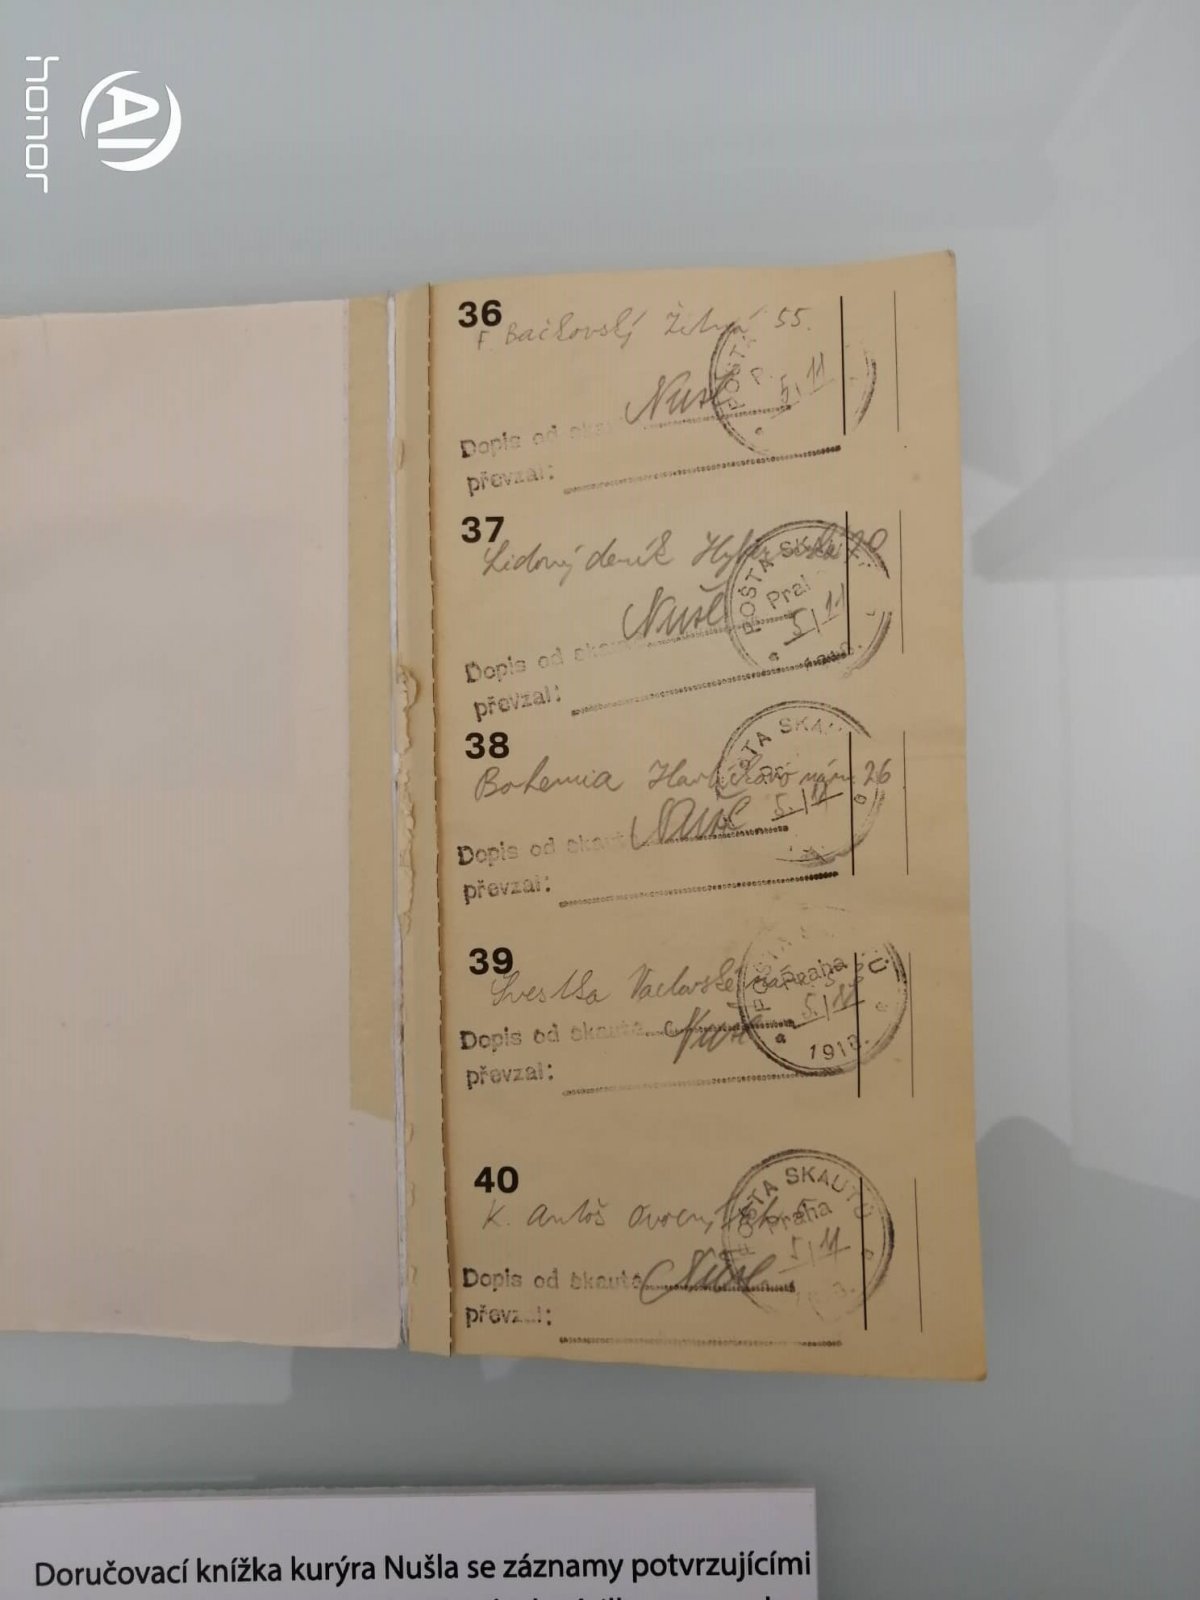 honor
AI
36
F. Bačkovský Žitná 55.
POŠTA
P.
5/11
Nušl
Dopis od ska
převzal:
37
Lidový deník 20
POŠTA SKAU
Pra
5/11
Nušl
Dopis od skauta
převzal:
38
Bohemia Havlíčkovo nám 26
TA SKA
5./11
Nušl
Dopis od skauta
převzal:
39
Václavské
Praha
5./11
1918.
Nušl
Dopis od skauta
převzal:
40
K. Antoš
POŠTA SKAUTŮ
Praha
5/11
Dopis od skauta Nušl
převzal:
Doručovací knížka kurýra Nušla se záznamy potvrzujícími